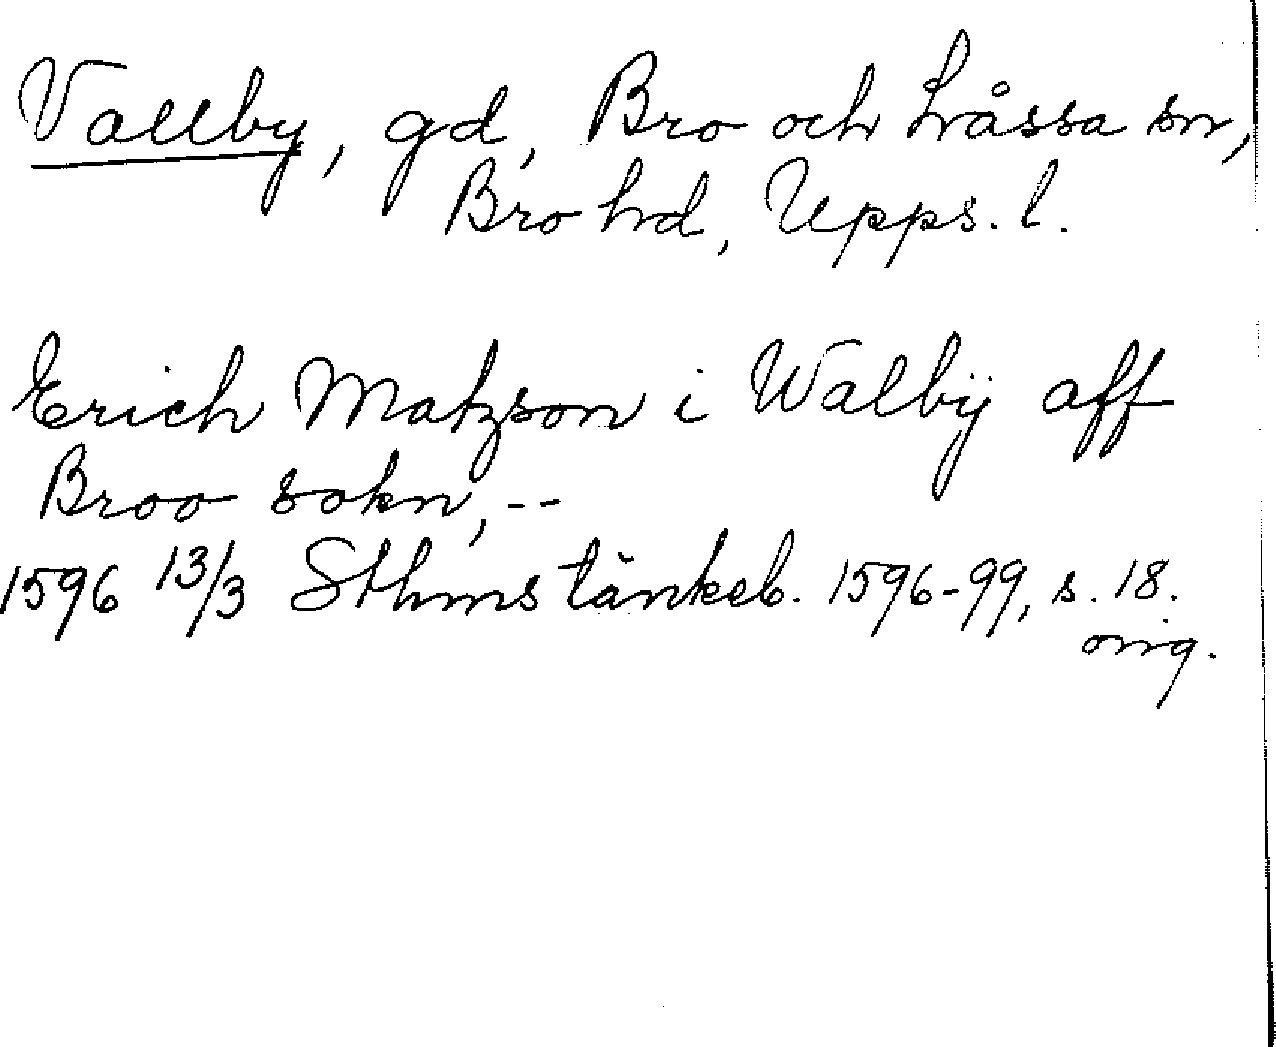 Vallby, gd, Bro och Låssa sn,
Bro hd, Upps. l.
Erich Matzson i Walbÿ aff
Broo sokn, --
1596 13/3 Sthms tänkeb. 1596-99, s. 18.
orig.